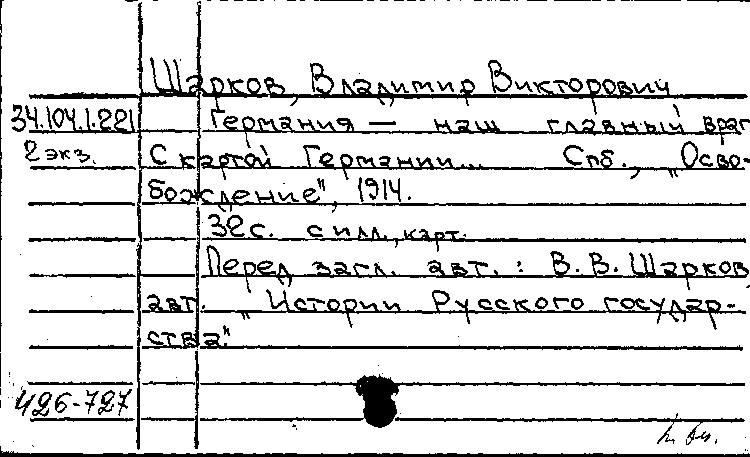 Шарков, Владимир Викторович
34.104.1.221 Германия — наш главный враг
2 экз. С картой Германии... Спб., „Осво-
бождение", 1914.
32с. с илл., карт.
Перед загл. авт.: В. В. Шарков,
авт. „Истории Русского государ-
ства".
426-727